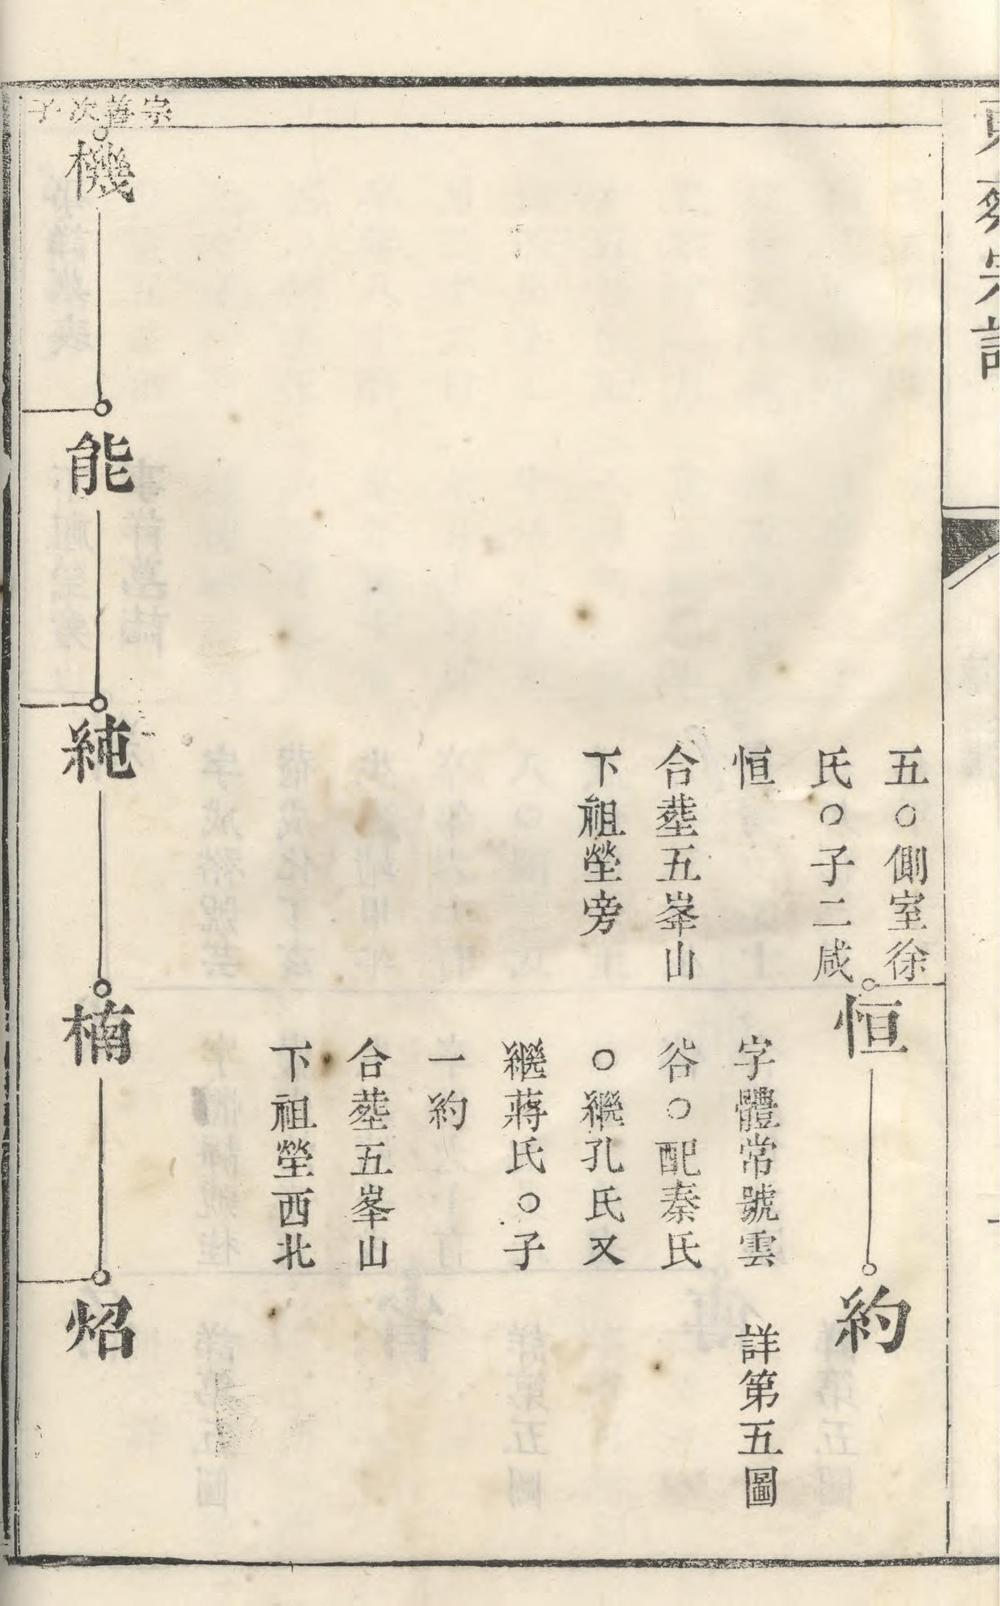 五○側室徐
氏○子二咸
恒
合塟五峯山
下祖塋旁
恒
字體常號雲
谷○配秦氏
○繼孔氏又
繼蔣氏○子
一約
合塟五峯山
下祖塋西北
約
詳第五圖
宗善次子
機
能
純
楠
炤